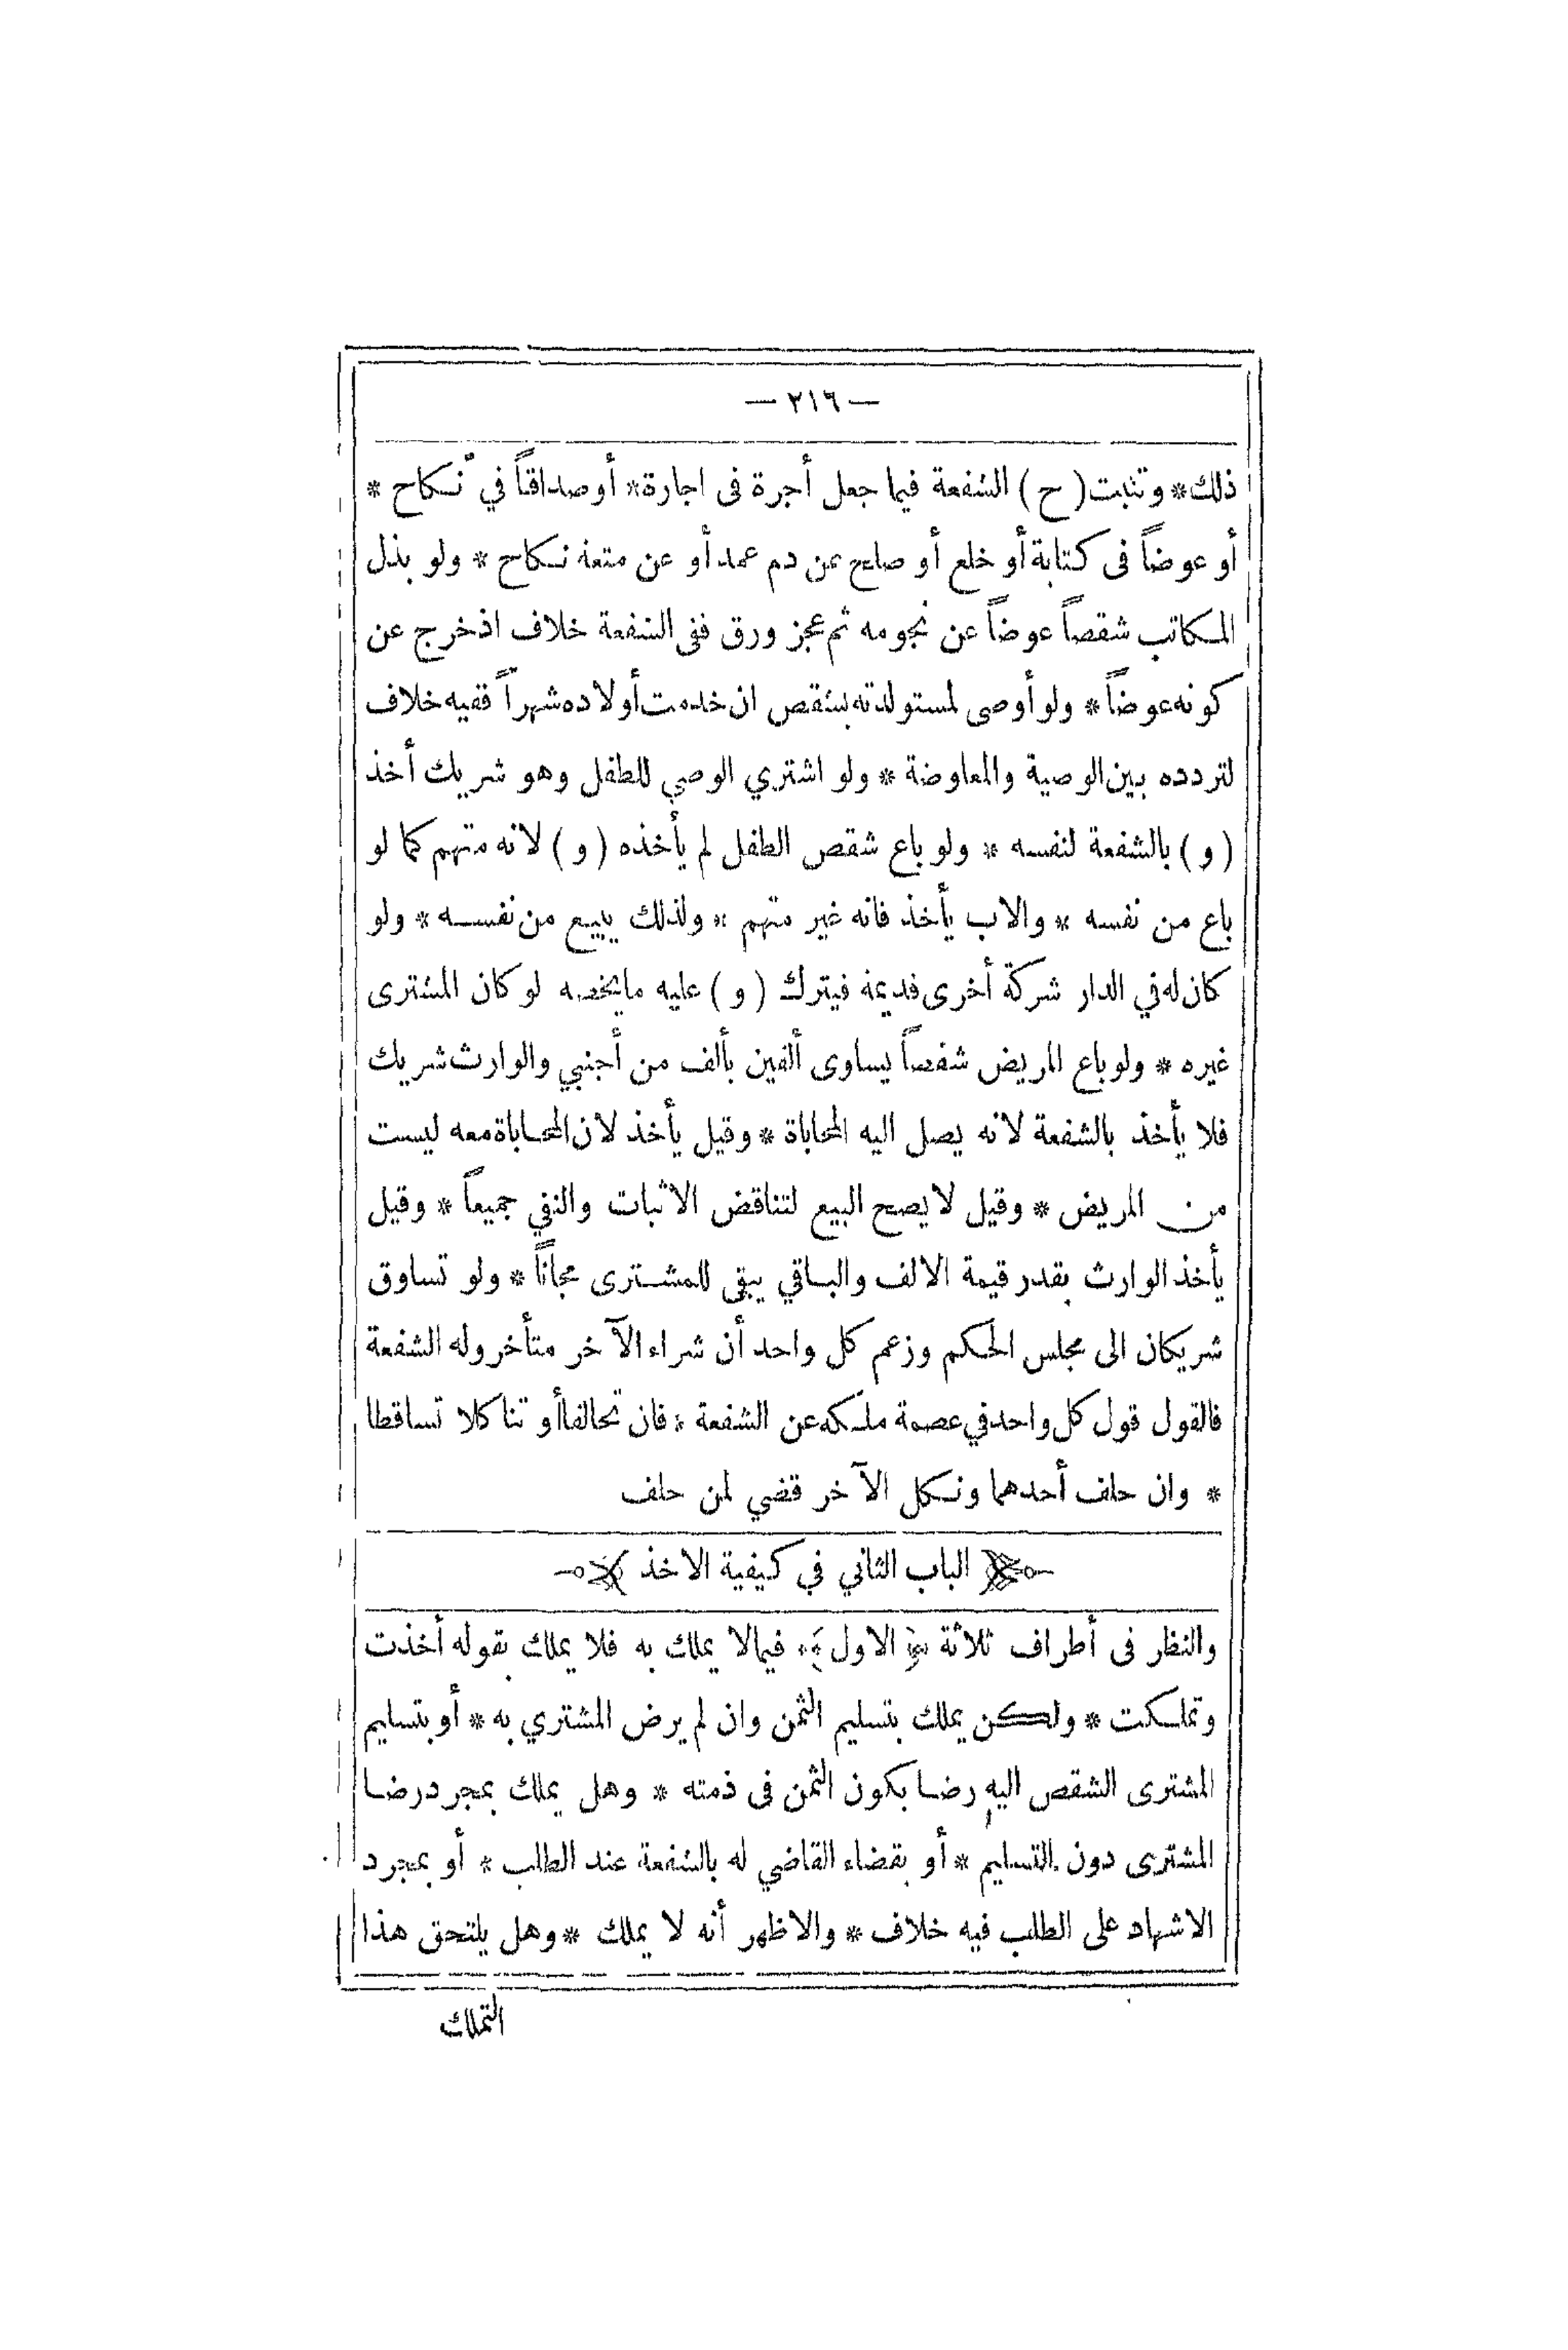 — ٢١٦ —
ذلك * وتثبت ( ح ) الشفعة فيما جعل أجرة فى اجارة * أو صداقاً في نكاح *
أو عوضاً فى كتابة أو خلع أو صلح عن دم عمد أو عن متعة نكاح * ولو بذل
المكاتب شقصاً عوضاً عن نجومه ثم عجز ورق ففى الشفعة خلاف اذ خرج عن
كونه عوضاً * ولو أوصى لمستولدته بشقص ان خدمت أولاده شهراً ففيه خلاف
لتردده بين الوصية والمعاوضة * ولو اشتري الوصي للطفل وهو شريك أخذ
( و ) بالشفعة لنفسه * ولو باع شقص الطفل لم يأخذه ( و ) لانه متهم كما لو
باع من نفسه * والاب يأخذ فانه غير متهم * ولذلك يبيع من نفسه * ولو
كان له في الدار شركة أخرى قديمة فيترك ( و ) عليه ما يخصه لو كان المشترى
غيره * ولو باع المريض شقصاً يساوى ألفين بألف من أجنبي والوارث شريك
فلا يأخذ بالشفعة لانه يصل اليه المحاباة * وقيل يأخذ لان المحاباة معه ليست
من المريض * وقيل لا يصح البيع لتناقض الاثبات والنفي جميعاً * وقيل
يأخذ الوارث بقدر قيمة الالف والباقي يبقى للمشترى مجاناً * ولو تساوق
شريكان الى مجلس الحكم وزعم كل واحد أن شراء الآخر متأخر وله الشفعة
فالقول قول كل واحد في عصمة ملكه عن الشفعة * فان تحالفا أو تناكلا تساقطا
* وان حلف أحدهما ونكل الآخر قضي لمن حلف
الباب الثاني في كيفية الاخذ
والنظر فى أطراف ثلاثة ﴿ الاول ﴾ فيما لا يملك به فلا يملك بقوله أخذت
وتملكت * ولكن يملك بتسليم الثمن وان لم يرض المشتري به * أو بتسليم
المشترى الشقص اليه رضا بكون الثمن فى ذمته * وهل يملك بمجرد رضا
المشترى دون التسليم * أو بقضاء القاضي له بالشفعة عند الطلب * أو بمجرد
الاشهاد على الطلب فيه خلاف * والاظهر أنه لا يملك * وهل يلتحق هذا
التملك